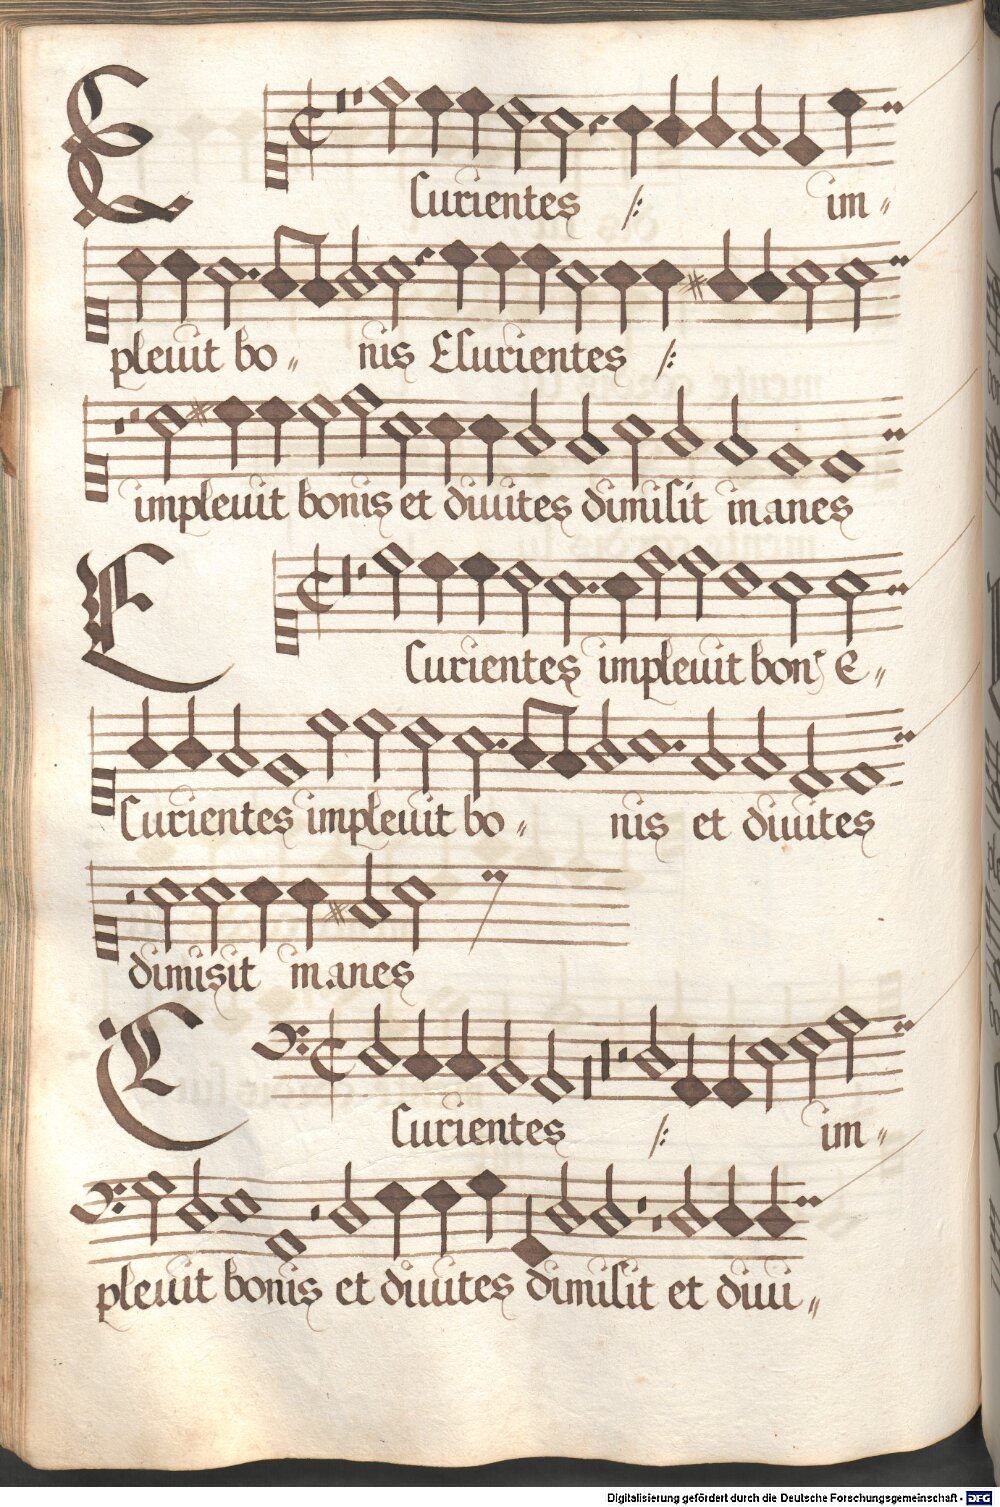 Esurientes /: im〃
pleuit bo〃 nis Esurientes /:
impleuit bonis et diuites dimisit inanes
Esurientes impleuit bonꝰ E〃
surientes impleuit bo〃 nis et diuites
dimisit inanes
Esurientes /: im〃
pleuit bonis et diuites dimisit et diui〃
Digitalisierung gefördert durch die Deutsche Forschungsgemeinschaft - DFG